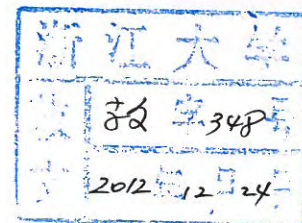 浙江大学
收文 教字348号
2012年12月24日